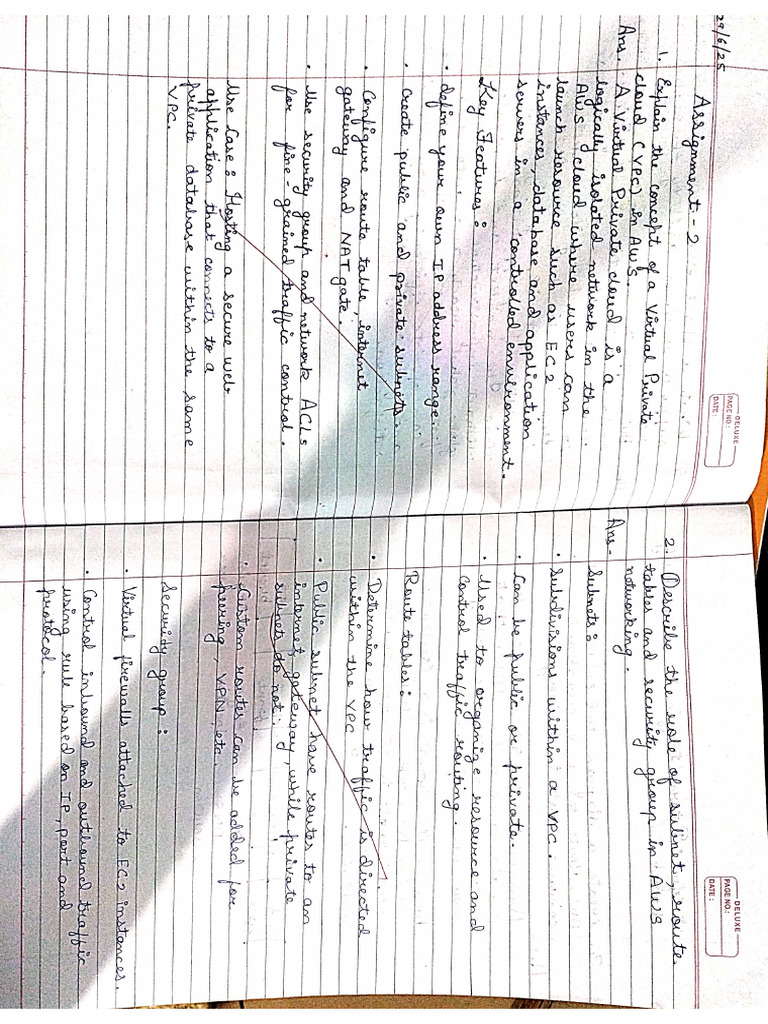 29/6/25
DELUXE
PAGE NO.:
DATE:
Assignment - 2
1. Explain the concept of a Virtual Private
cloud (VPC) in AWS.
Ans. A Virtual Private cloud is a
logically isolated network in the
AWS cloud where users can
launch resource such as EC2
instances, database and application
servers in a controlled environment.
Key Features:
• define your own IP address range.
• create public and private subnets.
• Configure route table, internet
gateway and NAT gate.
• Use security group and network ACLs
for fine-grained traffic control.
Use Case: Hosting a secure web
application that connects to a
private database within the same
VPC.
DELUXE
PAGE NO.:
DATE:
2. Describe the role of subnet, route
tables and security group in AWS
networking.
Ans-
Subnets:
• Subdivisions within a VPC.
• Can be public or private.
• Used to organize resource and
control traffic routing.
Route tables:
• Determine how traffic is directed
within the VPC
• Public subnet have routes to an
internet gateway, while private
subnets do not.
• Custom routes can be added for
peering, VPN, etc
Security group:
• Virtual firewalls attached to EC2 instances.
• Control inbound and outbound traffic
using rule based on IP, port and
protocol.